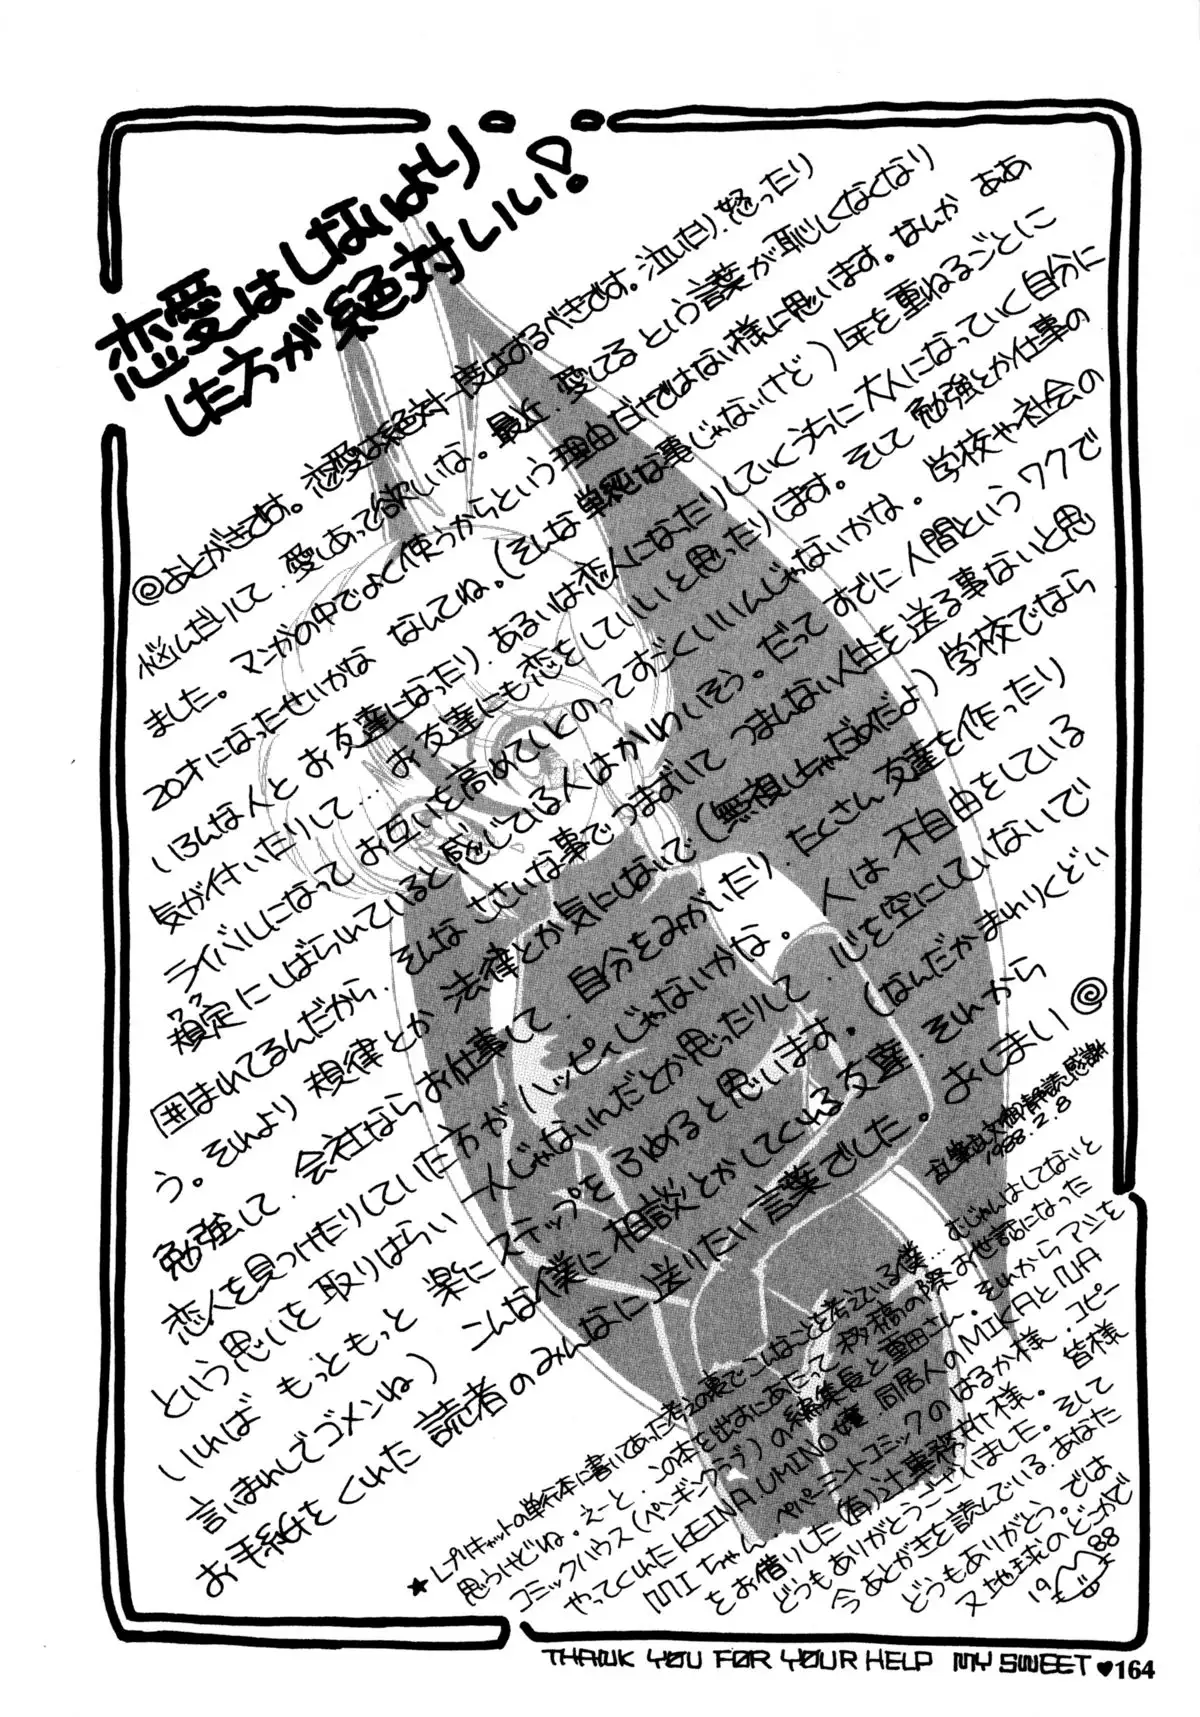 恋愛はしないより
した方が絶対いい!
◎あとがきです。恋愛は絶対一度はするべきです。泣いたり、怒ったり
悩んだりして、愛しあって欲しいな。最近、愛してるという言葉が恥しくなくなり
ました。マンガの中でよく使うからという理由だけではない様に思います。なんか ああ
20才になったせいかな なんてね。(そんな単純な事じゃないけど)年を重ねるごとに
いろんな人とお友達になったり、あるいは恋人になったりしていくうちに大人になっていく自分に
気が付いたりして…お友達にも恋をしていいと思ったりします。そして勉強とか仕事の
ライバルになってお互いを高めていくのってすごくいいんじゃないかな。学校や社会の
規定にしばられていると感じている人はかわいそう。だってすでに人間というワクで
囲まれてるんだから、そんなささいな事でつまずいてつまんない人生を送る事ないと思
う。それより規律とか法律とか気にしないで(無視しちゃだめだよ)学校でなら
勉強して、会社ならお仕事して、自分をみがいたり、たくさん友達を作ったり
恋人を見つけたりしていた方がハッピィじゃないかな。人は不自由をしている
という思いを取りはらい 一人じゃないんだとか思ったりして、心を空にしていないで
いれば もっともっと 楽にステップをふめると思います。(なんだかまわりくどい
言いまわしでゴメンね)こんな僕に相談とかしてくれる友達、それから
お手紙をくれた読者のみんなに送りたい言葉でした。おしまい◎
乱筆乱文御静読感謝
1988.2.8
★レプリキャットの単行本に書いてあった考えの裏でこんなことを考えている僕…むじゅんはしてないと
思うけどね。えーと、この本を出すにあたって移稿の際お世話になった
コミックハウス(ペンギンクラブ)の編集長と重田さん。それからアシを
やってくれたKEINA、UMINO嬢、同居人のMIKAとNA
MIちゃん、ペパーミントコミックのはるか様、コピー
をお借りした(有)辻事務所様。皆様
どうもありがとうございました。そして
今あとがきを読んでいるあなた
どうもありがとう。では
又地球のどこかで
19 88
THANK YOU FOR YOUR HELP MY SWEET ♥164